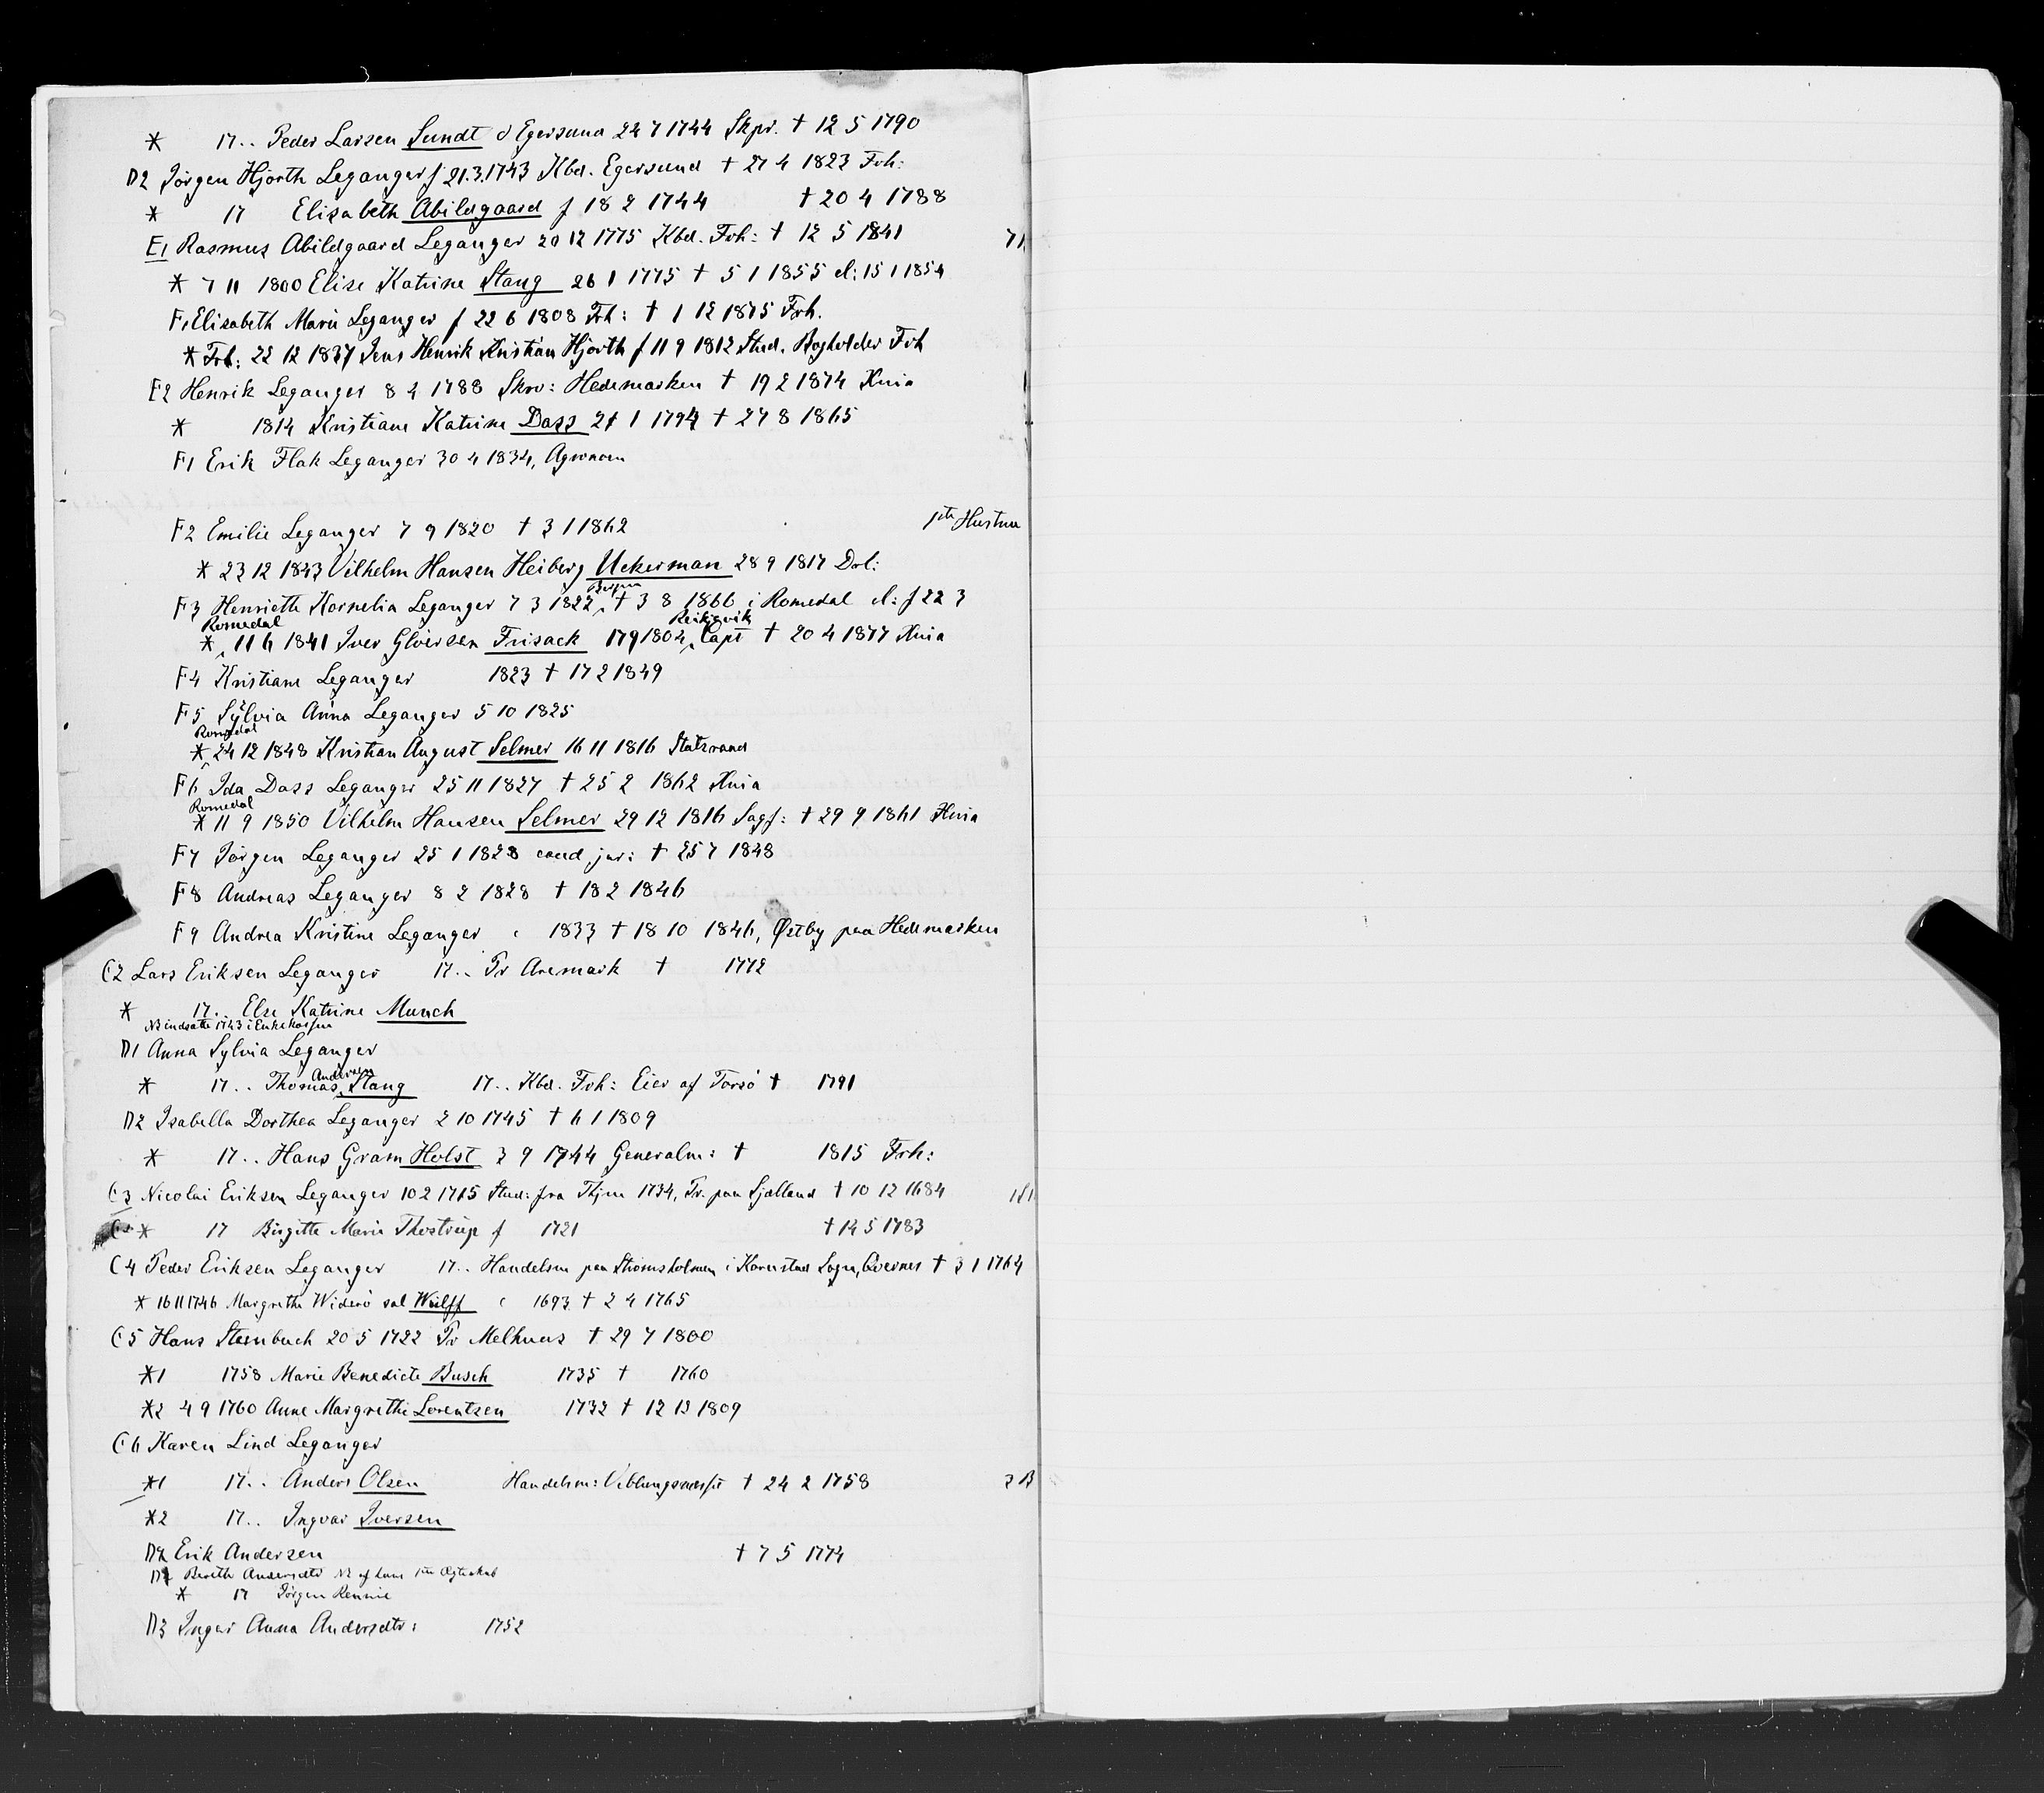 * 17.. Peder Larsen Sundt d Egersund 24 7 1744 Skpr. † 12 5 1790
D2 Jörgen Hjorth Leganger f 21.3.1743 Kbd. Egersund † 27 4 1823 Frh:
* 17 Elisabeth Abildgaard f 18 2 1744 † 20 4 1788
E1 Rasmus Abildgaard Leganger 20 12 1775 Kbd. Frh: † 12 5 1841
* 7 11 1800 Elise Katrine Stang 26 1 1775 † 5 1 1855 el: 15 1 1854
F1 Elisabeth Marie Leganger f 22 6 1808 Frh: † 1 12 1875 Frh.
* Frh: 22 12 1837 Jens Henrik Kristian Hjorth f 11 9 1812 Stud. Bogholder Frh
E2 Henrik Leganger 8 4 1788 Skrv: Hedemarken † 19 2 1874 Kria
* 1814 Kristiane Katrine Dass 27 1 1794 † 27 8 1865
F1 Erik Flak Leganger 30 4 1834, Agronom
F2 Emilie Leganger 7 9 1820 † 3 1 1862 1ste Hustru
* 23 12 1843 Vilhelm Hansen Heiberg Uckerman 28 9 1817 Drl:
F3 Henriette Kornelia Leganger 7 3 1822 Bergen † 3 8 1866 i Romedal el: f 22 3
* Romedal 11 6 1841 Iver Glöersen Frisack 17 9 1804 Reikjavik Capt † 20 4 1877 Kria
F4 Kristiane Leganger 1823 † 17 2 1849
F5 Sylvia Anna Leganger 5 10 1825
Romedal
* 24 12 1848 Kristian August Selmer 16 11 1816 Statsraad
F6 Ida Dass Leganger 25 11 1827 † 25 2 1862 Kria
Romedal
* 11 9 1850 Vilhelm Hansen Selmer 29 12 1816 Sagf: † 29 9 1861 Kria
F7 Jörgen Leganger 25 1 1828 cand jur: † 25 7 1848
F8 Andreas Leganger 8 2 1828 † 18 2 1846
F9 Andrea Kristine Leganger c 1833 † 18 10 1846, Østby paa Hedemarken
C2 Lars Eriksen Leganger 17.. Pr Aremark † 1772
* 17.. Else Katrine Munch
NB indsatte 1743 i Enkekassen
D1 Anna Sylvia Leganger
* 17.. Thomas Andersen Stang 17.. Kbd. Frh: Eier af Torsö † 1791
D2 Isabella Dorthea Leganger 2 10 1745 † 6 1 1809
* 17.. Hans Gram Holst 3 9 1744 Generalm: † 1815 Frh:
C3 Nicolai Eriksen Leganger 10 2 1715 Stud: fra Thjm 1734, Pr. paa Sjælland † 10 12 1684
* 17 Birgitte Marie Thostrup f 1721 † 14 5 1783
C4 Peder Eriksen Leganger 17.. Handelsm paa Strömsholmen i Kornstad Sogn, Qvernes † 3 1 1764
* 16 11 1746 Margrethe Widerö sal Wulff c 1693 † 2 4 1765
C5 Hans Steenbuch 20 5 1722 Pr Melhuus † 29 7 1800
*1 1758 Marie Benedicte Busch 1735 † 1760
*2 4 9 1760 Anne Margrethe Lorentzen 1732 † 12 12 1809
C6 Karen Lind Leganger
*1 17.. Anders Olsen Handelsm: Veblungsnesset † 24 2 1758
*2 17.. Ingvar Iversen
D2 Erik Andersen † 7 5 1774
D1 Berith Andersdtr NB af hans 1ste Ægteskab
* 17 Jörgen Rennie
D3 Inger Anna Andersdtr: 1752